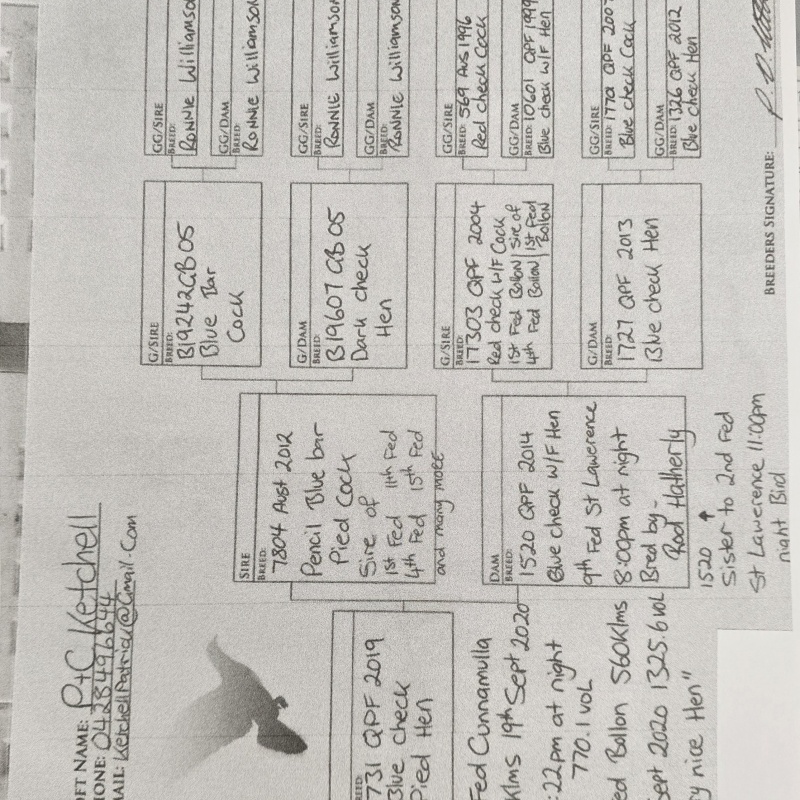 OFT NAME: P+C Ketchell
HONE: 0428496644
MAIL: KetchellPatrick@Gmail.Com
731 QPF 2019
Blue check
Pied Hen
Fed Cunnamulla
Klms 19th Sept 2020
:22pm at night
770.1 vol
ed Bollon 560Klms
Sept 2020 1325.6 vol
y nice Hen"
SIRE
BREED:
7804 Aust 2012
Pencil Blue bar
Pied Cock
Sire of
1st Fed 11th Fed
4th Fed 15th Fed
and many more
DAM
BREED:
1520 QPF 2014
Blue check W/F Hen
9th Fed St Lawerence
8:00pm at night
Bred by-
Rod Hatherly
1520 ↑
Sister to 2nd Fed
St Lawerence 11:00pm
night Bird
G/SIRE
BREED:
B19242 GB 05
Blue Bar
Cock
G/DAM
BREED:
B19607 GB 05
Dark check
Hen
G/SIRE
BREED:
17303 QPF 2004
Red check W/F Cock
1st Fed Bollon | Sire of
4th Fed Bollon | 1st Fed
Bollon
G/DAM
BREED:
1727 QPF 2013
Blue check Hen
GG/SIRE
BREED:
RONNIE Williamson
GG/DAM
BREED:
RONNIE Williamson
GG/SIRE
BREED:
RONNIE Williamson
GG/DAM
BREED:
RONNIE Williamson
GG/SIRE
BREED: 569 Aus 1996
Red check Cock
GG/DAM
BREED: 10601 QPF 1999
Blue check W/F Hen
GG/SIRE
BREED: 1770 QPF 2007
Blue check Cock
GG/DAM
BREED: 1326 QPF 2012
Blue check Hen
BREEDERS SIGNATURE: